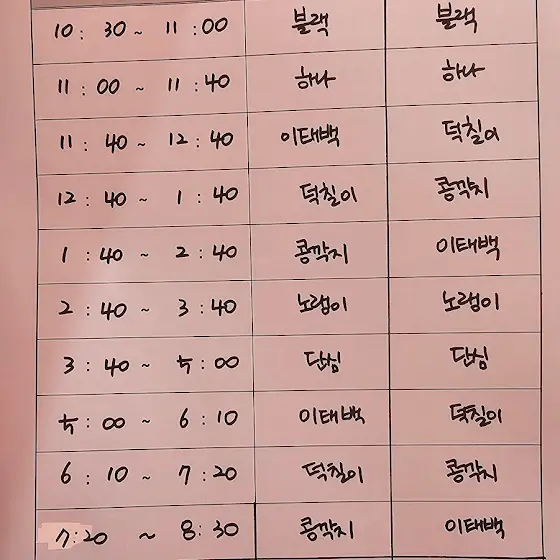 10 : 30 ~ 11 : 00 블랙 블랙
11 : 00 ~ 11 : 40 하나 하나
11 : 40 ~ 12 : 40 이태백 덕칠이
12 : 40 ~ 1 : 40 덕칠이 콩깍지
1 : 40 ~ 2 : 40 콩깍지 이태백
2 : 40 ~ 3 : 40 노랭이 노랭이
3 : 40 ~ 5 : 00 단심 단심
5 : 00 ~ 6 : 10 이태백 덕칠이
6 : 10 ~ 7 : 20 덕칠이 콩깍지
7 : 20 ~ 8 : 30 콩깍지 이태백